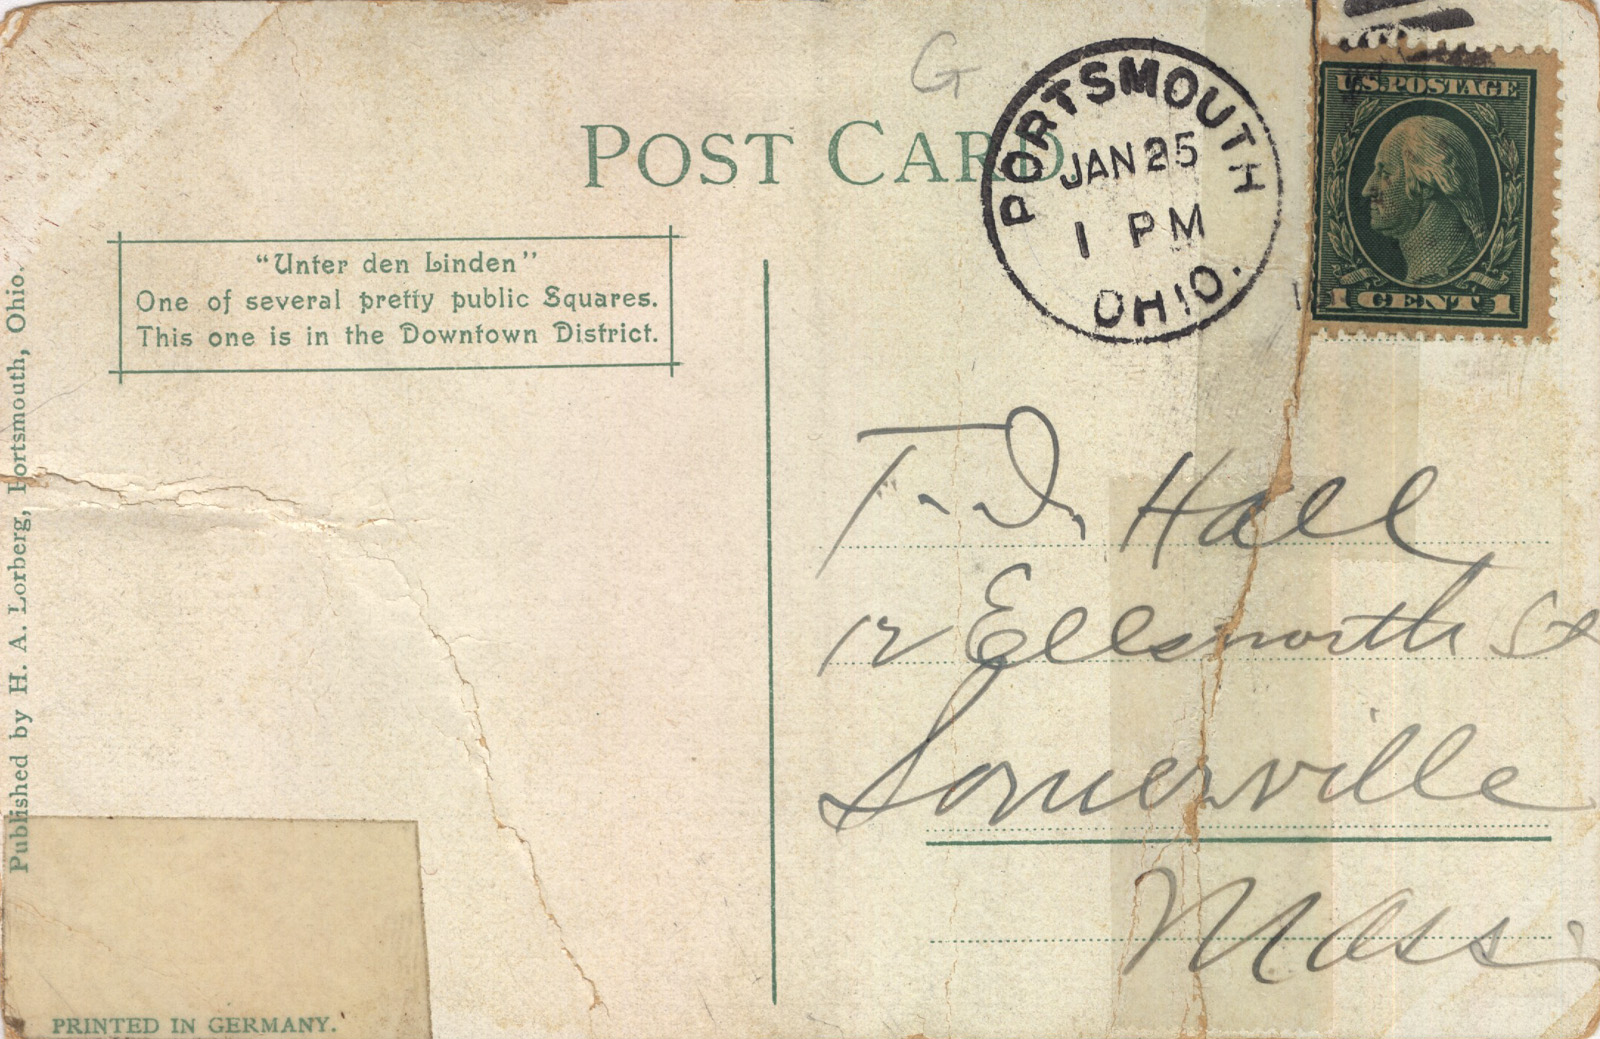 G
POST CARD
PORTSMOUTH
JAN 25
1 PM
OHIO.
U.S. POSTAGE
1 CENT 1
"Unter den Linden"
One of several pretty public Squares.
This one is in the Downtown District.
Published by H. A. Lorberg, Portsmouth, Ohio.
T. D. Hall
12 Ellsworth St
Somerville
Mass.
PRINTED IN GERMANY.